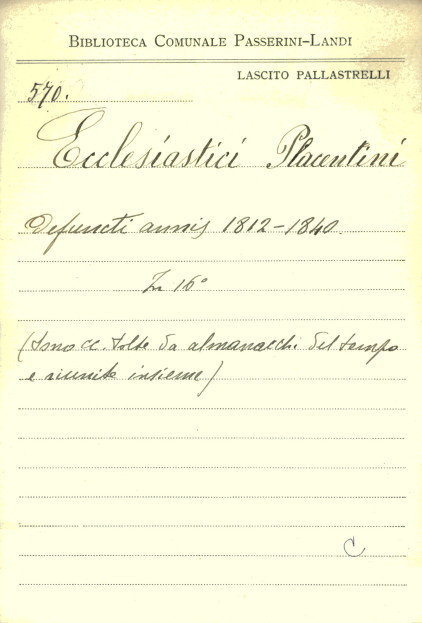 BIBLIOTECA COMUNALE PASSERINI-LANDI
LASCITO PALLASTRELLI
570.
Ecclesiastici Placentini
Defuncti annis 1812-1840.
In 16°
(Sono cc. tolte da almanacchi del tempo
e riunite insieme)
C